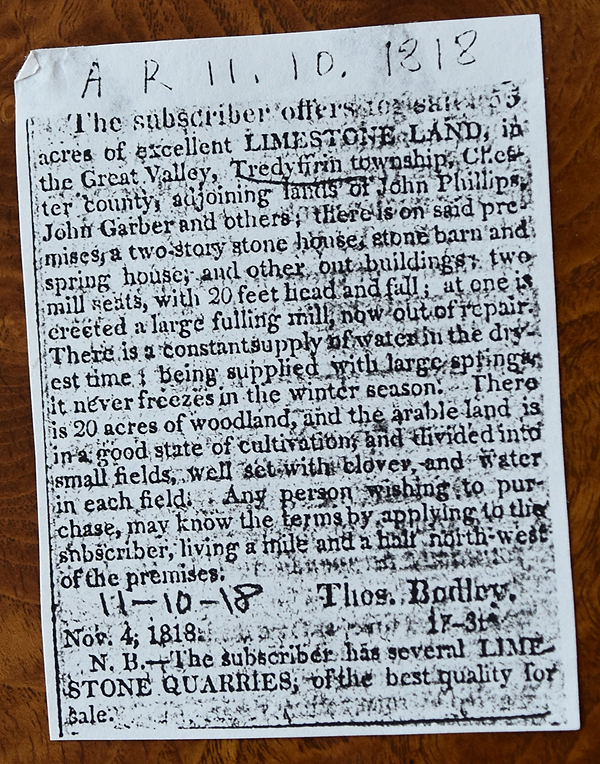 A R 11. 10. 1818
The subscriber offers for sale 53
acres of excellent LIMESTONE LAND, in
the Great Valley, Tredyffrin township, Ches-
ter county, adjoining lands of John Phillips,
John Garber and others; there is on said pre-
mises, a two-story stone house, stone barn and
spring house; and other out buildings; two
mill seats, with 20 feet head and fall; at one is
erected a large fulling mill, now out of repair.
There is a constant supply of water in the dry-
est time; being supplied with large springs,
it never freezes in the winter season. There
is 20 acres of woodland, and the arable land is
in a good state of cultivation; and divided into
small fields, well set with clover, and water
in each field. Any person wishing to pur-
chase, may know the terms by applying to the
subscriber, living a mile and a half north-west
of the premises.
11-10-18 Thos. Bodley.
Nov. 4, 1818. 17-3t
N. B.—The subscriber has several LIME-
STONE QUARRIES, of the best quality for
sale.